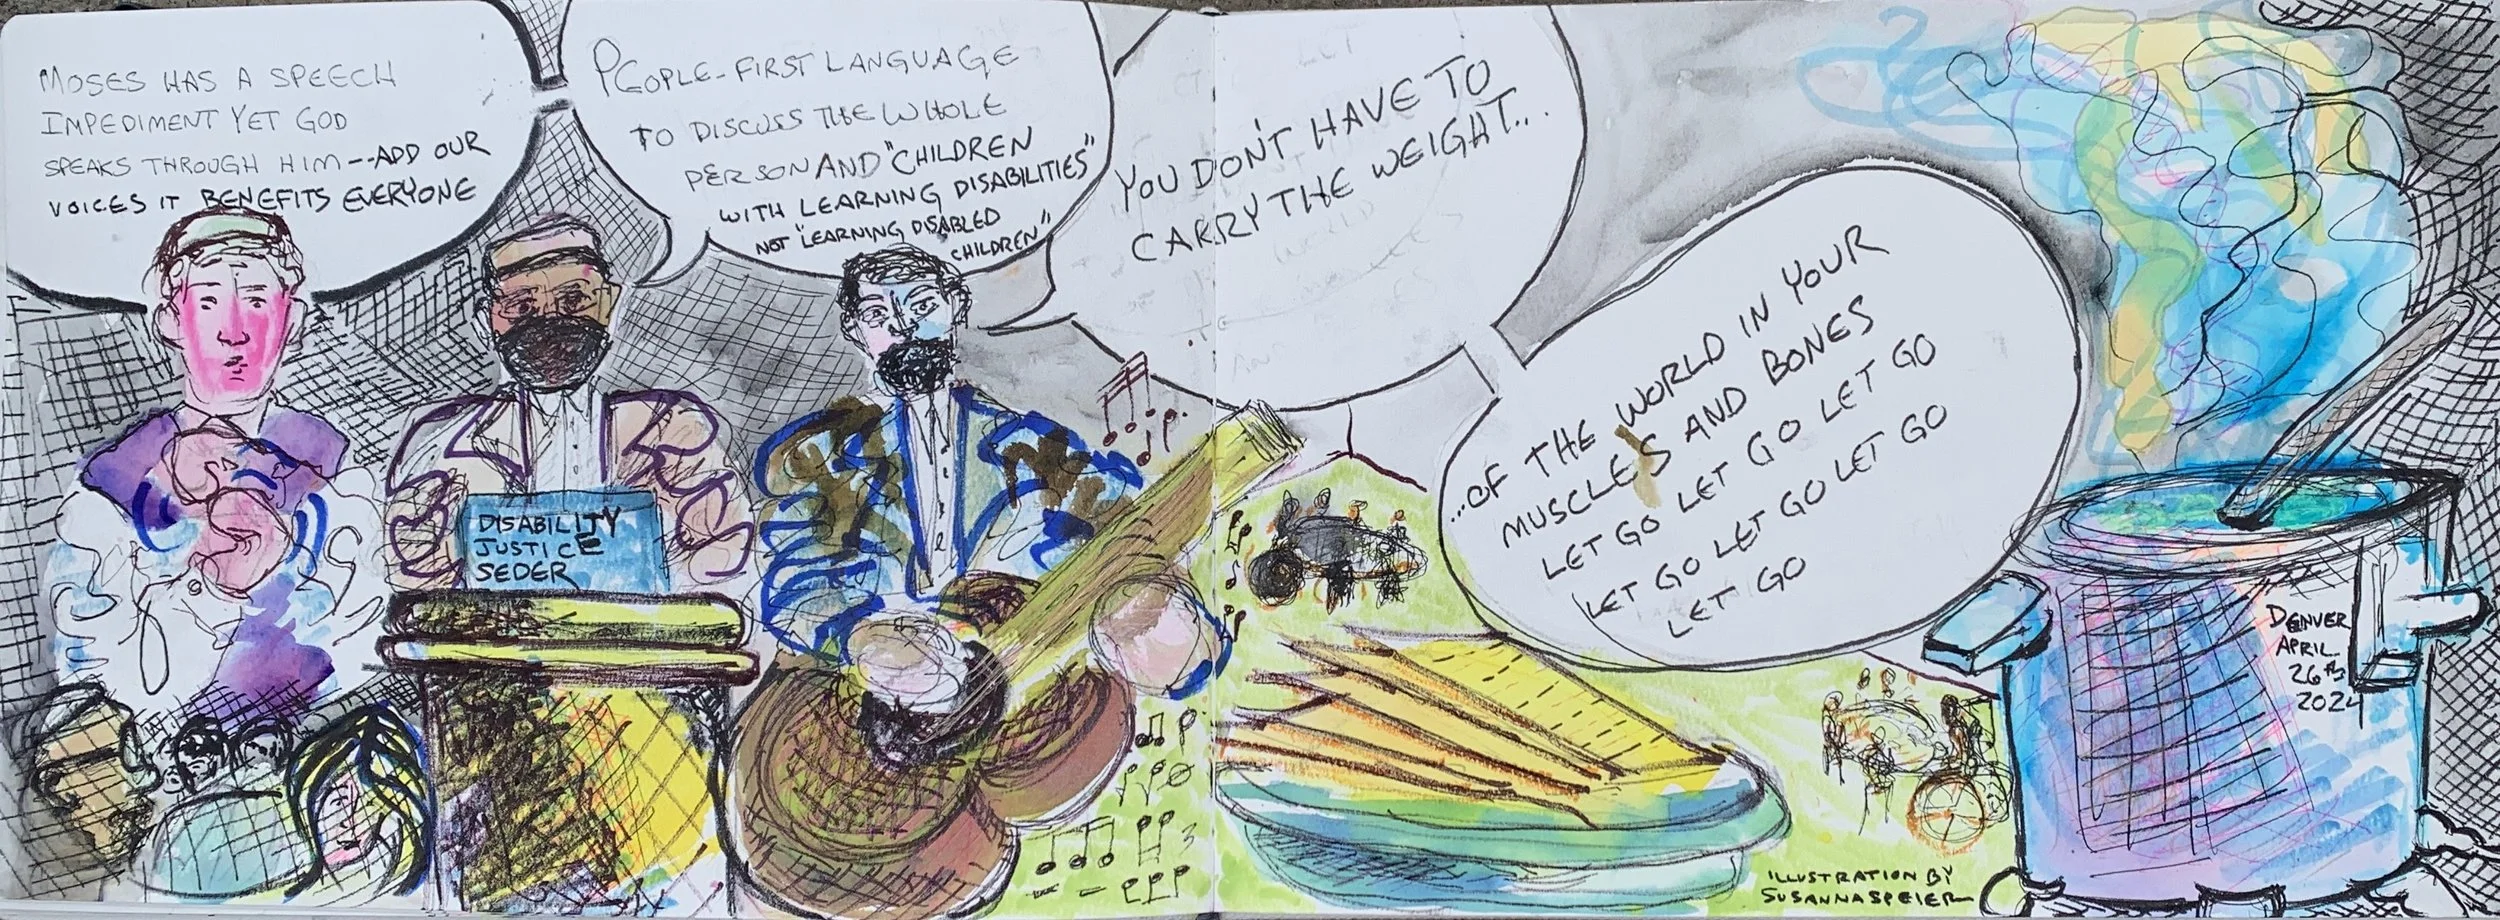 MOSES HAS A SPEECH
IMPEDIMENT YET GOD
SPEAKS THROUGH HIM--ADD OUR
VOICES IT BENEFITS EVERYONE
PEOPLE-FIRST LANGUAGE
TO DISCUSS THE WHOLE
PERSON AND "CHILDREN
WITH LEARNING DISABILITIES"
NOT "LEARNING DISABLED
CHILDREN"
YOU DON'T HAVE TO
CARRY THE WEIGHT...
...OF THE WORLD IN YOUR
MUSCLES AND BONES
LET GO LET GO LET GO
LET GO LET GO LET GO
LET GO
DISABILITY
JUSTICE
SEDER
DENVER
APRIL
26TH
2024
ILLUSTRATION BY
SUSANNA SPEIER